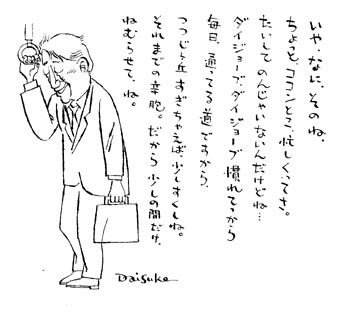 いや、なに、そのね、
ちょっと、ココントこ、忙しくってさ。
たいして のんじゃいないんだけどね…
ダイジョーブ、ダイジョーブ 慣れてっから
毎日、通ってる 道ですから、
つつじヶ丘 すぎちゃえば、少しすくしね。
それまでの辛抱。だから 少しの間だけ、
ねむらせて、ね。
Daisuke